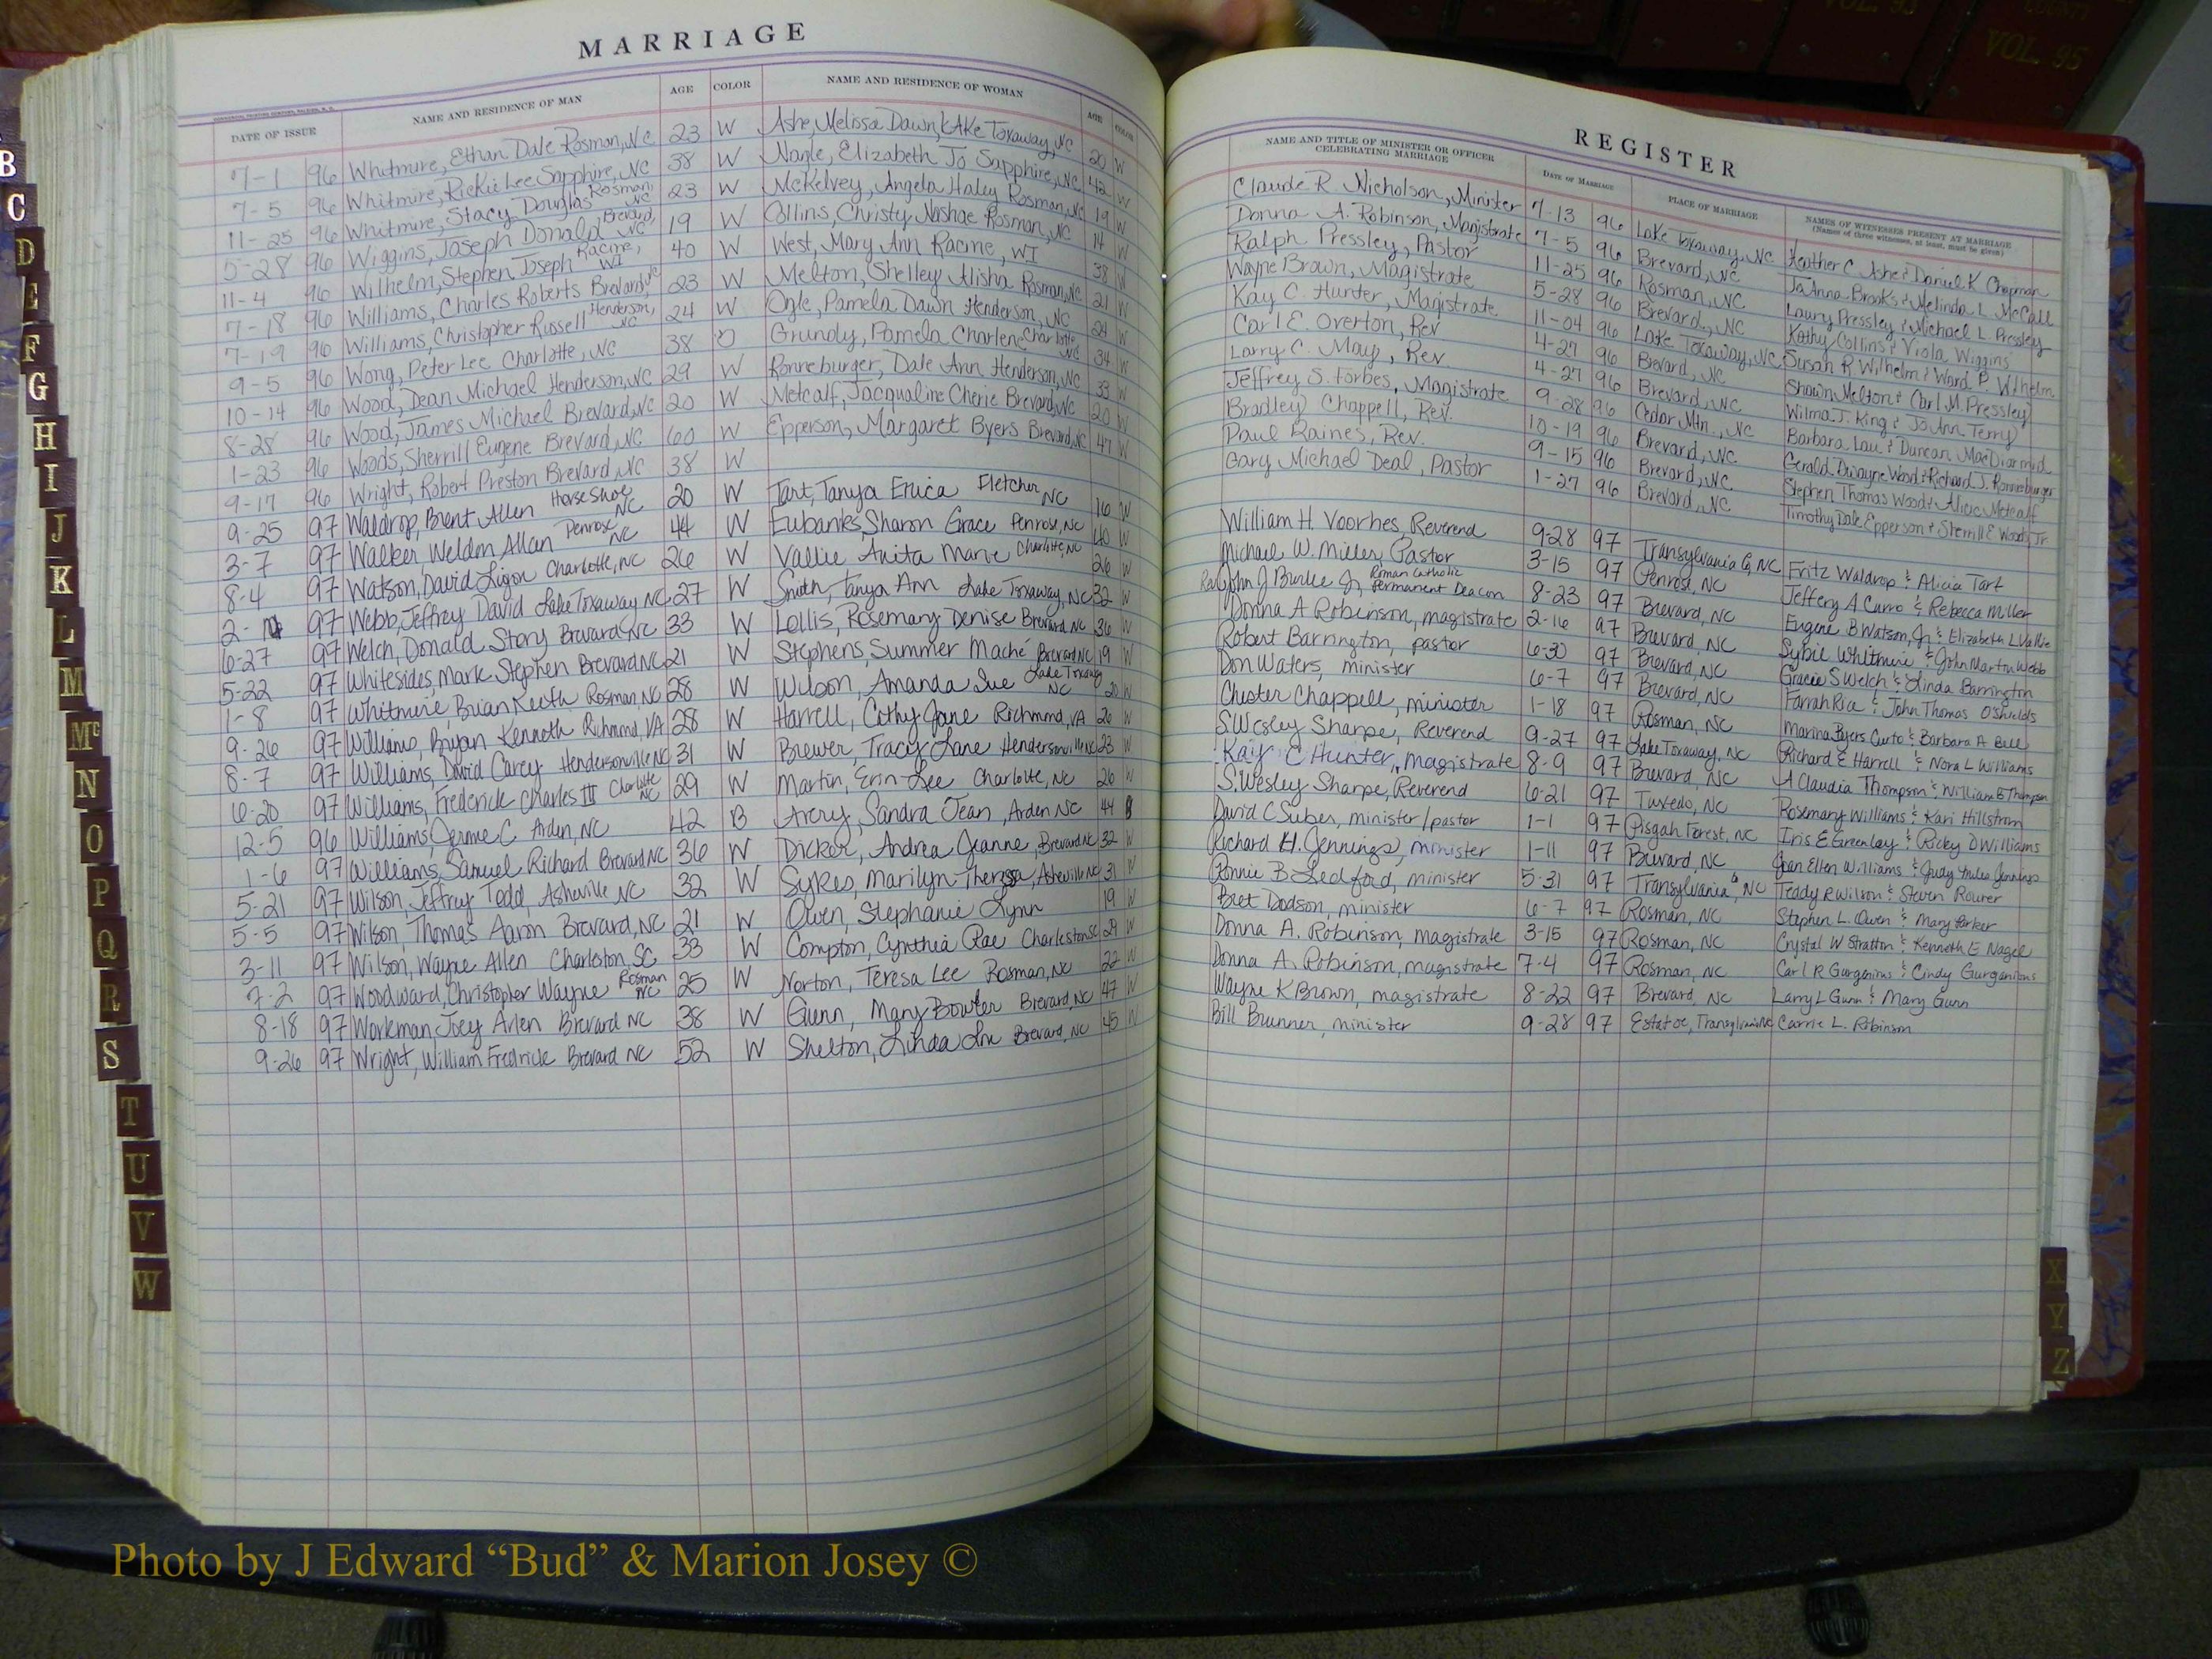 MARRIAGE
DATE OF ISSUE NAME AND RESIDENCE OF MAN AGE COLOR NAME AND RESIDENCE OF WOMAN AGE COLOR
7-1 96 Whitmire, Ethan Dale Rosman, NC 23 W Ashe, Melissa Dawn, Lake Toxaway, NC 20 W
7-5 96 Whitmire, Rickie Lee Sapphire, NC 38 W Nagle, Elizabeth Jo Sapphire, NC 42 W
11-25 96 Whitmire, Stacy Douglas Rosman, NC 23 W McKelvey, Angela Haley Rosman, NC 19 W
5-28 96 Wiggins, Joseph Donald Brevard, NC 19 W Collins, Christy Nashae Rosman, NC 14 W
11-4 96 Wilhelm, Stephen Joseph Racine, WI 40 W West, Mary Ann Racine, WI 38 W
7-18 96 Williams, Charles Roberts Brevard, NC 23 W Melton, Shelley Alisha Rosman, NC 21 W
7-19 96 Williams, Christopher Russell Henderson, NC 24 W Ogle, Pamela Dawn Henderson, NC 24 W
9-5 96 Wong, Peter Lee Charlotte, NC 38 O Grundy, Pamela Charlene Charlotte, NC 34 W
10-14 96 Wood, Dean Michael Henderson, NC 29 W Ronneburger, Dale Ann Henderson, NC 33 W
8-28 96 Wood, James Michael Brevard, NC 20 W Metcalf, Jacqualine Cherie Brevard, NC 20 W
1-23 96 Woods, Sherrill Eugene Brevard, NC 60 W Epperson, Margaret Byers Brevard, NC 47 W
9-17 96 Wright, Robert Preston Brevard, NC 38 W
9-25 97 Waldrop, Brent Allen Horse Shoe NC 20 W Tart, Tanya Erica Fletcher NC 16 W
3-7 97 Walker, Weldon Allan Penrose NC 44 W Eubanks, Sharon Grace Penrose, NC 40 W
8-4 97 Watson, David Ligon Charlotte, NC 26 W Vallie Anita Marie Charlotte, NC 26 W
2- 97 Webb, Jeffrey David Lake Toxaway NC 27 W Smith, Tanya Ann Lake Toxaway, NC 32 W
6-27 97 Welch, Donald Stony Brevard, NC 33 W Lollis, Rosemary Denise Brevard NC 36 W
5-22 97 Whitesides, Mark Stephen Brevard NC 21 W Stephens, Summer Maché Brevard NC 19 W
1-8 97 Whitmire, Brian Keith Rosman, NC 28 W Wilson, Amanda Sue Lake Toxaway NC 20 W
9-26 97 Williams, Bryan Kenneth Richmond, VA 28 W Harrell, Cathy Jane Richmond, VA 26 W
8-7 97 Williams, David Carey Hendersonville NC 31 W Brewer, Tracy Lane Hendersonville NC 23 W
6-20 97 Williams, Frederick Charles III Charlotte NC 29 W Martin, Erin Lee Charlotte, NC 26 W
12-5 96 Williams, Jerome C Arden, NC 42 B Avery, Sandra Jean, Arden NC 44 B
1-6 97 Williams, Samuel Richard Brevard NC 36 W Dicker, Andrea Jeanne, Brevard NC 32 W
5-21 97 Wilson, Jeffrey Todd, Asheville NC 32 W Sykes, Marilyn Theresa, Asheville NC 31 W
5-5 97 Wilson, Thomas Aaron Brevard, NC 21 W Owen, Stephanie Lynn 19 W
3-11 97 Wilson, Wayne Allen Charleston, SC 33 W Compton, Cynthia Rae Charleston SC 29 W
7-2 97 Woodward, Christopher Wayne Rosman NC 25 W Norton, Teresa Lee Rosman, NC 22 W
8-18 97 Workman, Joey Arlen Brevard NC 38 W Gunn, Mary Bowler Brevard, NC 47 W
9-26 97 Wright, William Fredrick Brevard NC 52 W Shelton, Linda Lou Brevard, NC 45 W
REGISTER
NAME AND TITLE OF MINISTER OR OFFICER CELEBRATING MARRIAGE DATE OF MARRIAGE PLACE OF MARRIAGE NAMES OF WITNESSES PRESENT AT MARRIAGE
(Names of three witnesses, at least, must be given)
Claude R. Nicholson, Minister 7-13 96 Lake Toxaway, NC Heather C. Ashe & Daniel K Chapman
Donna A. Robinson, Magistrate 7-5 96 Brevard, NC JoAnna Brooks & Melinda L. McCall
Ralph Pressley, Pastor 11-25 96 Rosman, NC Laury Pressley & Michael L. Pressley
Wayne Brown, Magistrate 5-28 96 Brevard, NC Kathy Collins & Viola Wiggins
Kay C. Hunter, Magistrate 11-04 96 Lake Toxaway, NC Susan R Wilhelm & Ward P. Wilhelm
Carl E. Overton, Rev 4-27 96 Brevard, NC Shawn Melton & Carl M. Pressley
Larry C. May, Rev. 4-27 96 Brevard, NC Wilma J. King & JoAnn Terry
Jeffrey S. Forbes, Magistrate 9-28 96 Cedar Mtn., NC Barbara Lau & Duncan MacDiarmid
Bradley Chappell, Rev. 10-19 96 Brevard, NC Gerald Dwayne Wood & Richard J. Ronneburger
Paul Raines, Rev. 9-15 96 Brevard, NC Stephen Thomas Wood & Alicia Metcalf
Gary Michael Deal, Pastor 1-27 96 Brevard, NC Timothy Dale Epperson & Sherrill E Woods Jr
William H. Voorhes, Reverend 9-28 97 Transylvania Co, NC Fritz Waldrop & Alicia Tart
Michael W. Miller, Pastor 3-15 97 Penrose, NC Jeffery A Curro & Rebecca Miller
John J Burke Jr, Roman Catholic Permanent Deacon 8-23 97 Brevard, NC Eugene B Watson, Jr & Elizabeth L Vallie
Donna A Robinson, magistrate 2-16 97 Brevard, NC Sybil Whitmire & John Martin Webb
Robert Barrington, pastor 6-30 97 Brevard, NC Gracie S Welch & Linda Barrington
Don Waters, minister 6-7 97 Brevard, NC Farrah Rice & John Thomas O'Shields
Chester Chappell, minister 1-18 97 Rosman, NC Marina Byers Curto & Barbara A Bell
S.Wesley Sharpe, Reverend 9-27 97 Lake Toxaway, NC Richard E Harrell & Nora L Williams
Kay C Hunter, magistrate 8-9 97 Brevard, NC A Claudia Thompson & William B Thompson
S.Wesley Sharpe, Reverend 6-21 97 Tuxedo, NC Rosemary Williams & Kari Hillstrom
David C Suber, minister/pastor 1-1 97 Pisgah Forest, NC Iris E Greenlay & Ricky D Williams
Richard H. Jennings, minister 1-11 97 Brevard, NC Joan Ellen Williams & Judy Jennings
Ronnie B Ledford, minister 5-31 97 Transylvania Co NC Teddy R Wilson & Steven Rourer
Bret Dodson, minister 6-7 97 Rosman, NC Stephen L. Owen & Mary Parker
Donna A. Robinson, magistrate 3-15 97 Rosman, NC Crystal W Stratton & Kenneth E Nagel
Donna A. Robinson, magistrate 7-4 97 Rosman, NC Carl R Gurganious & Cindy Gurganious
Wayne K Brown, magistrate 8-22 97 Brevard, NC Larry L Gunn & Mary Gunn
Bill Brunner, minister 9-28 97 Estatoe, Transylvania NC Carrie L. Robinson
B
C
D
E
F
G
H
I
J
K
L
M
Mc
N
O
P
Q
R
S
T
U
V
W
X
Y
Z
VOL. 93
COUNTY
VOL. 95
Photo by J Edward “Bud” & Marion Josey ©